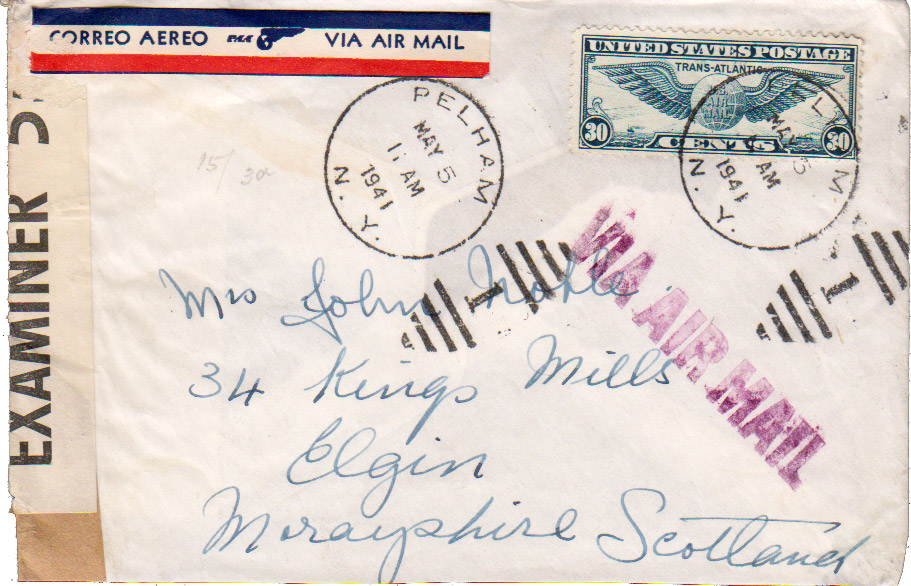 CORREO AEREO VIA AIR MAIL
UNITED STATES POSTAGE
TRANS-ATLANTIC
U.S.
AIR
MAIL
30 CENTS 30
PELHAM
MAY 5
AM
1941
N. Y.
PELHAM
MAY 5
AM
1941
N. Y.
15/
30
EXAMINER 5
VIA AIR MAIL
1
1
Mrs John Noble
34 Kings Mills
Elgin
Morayshire Scotland